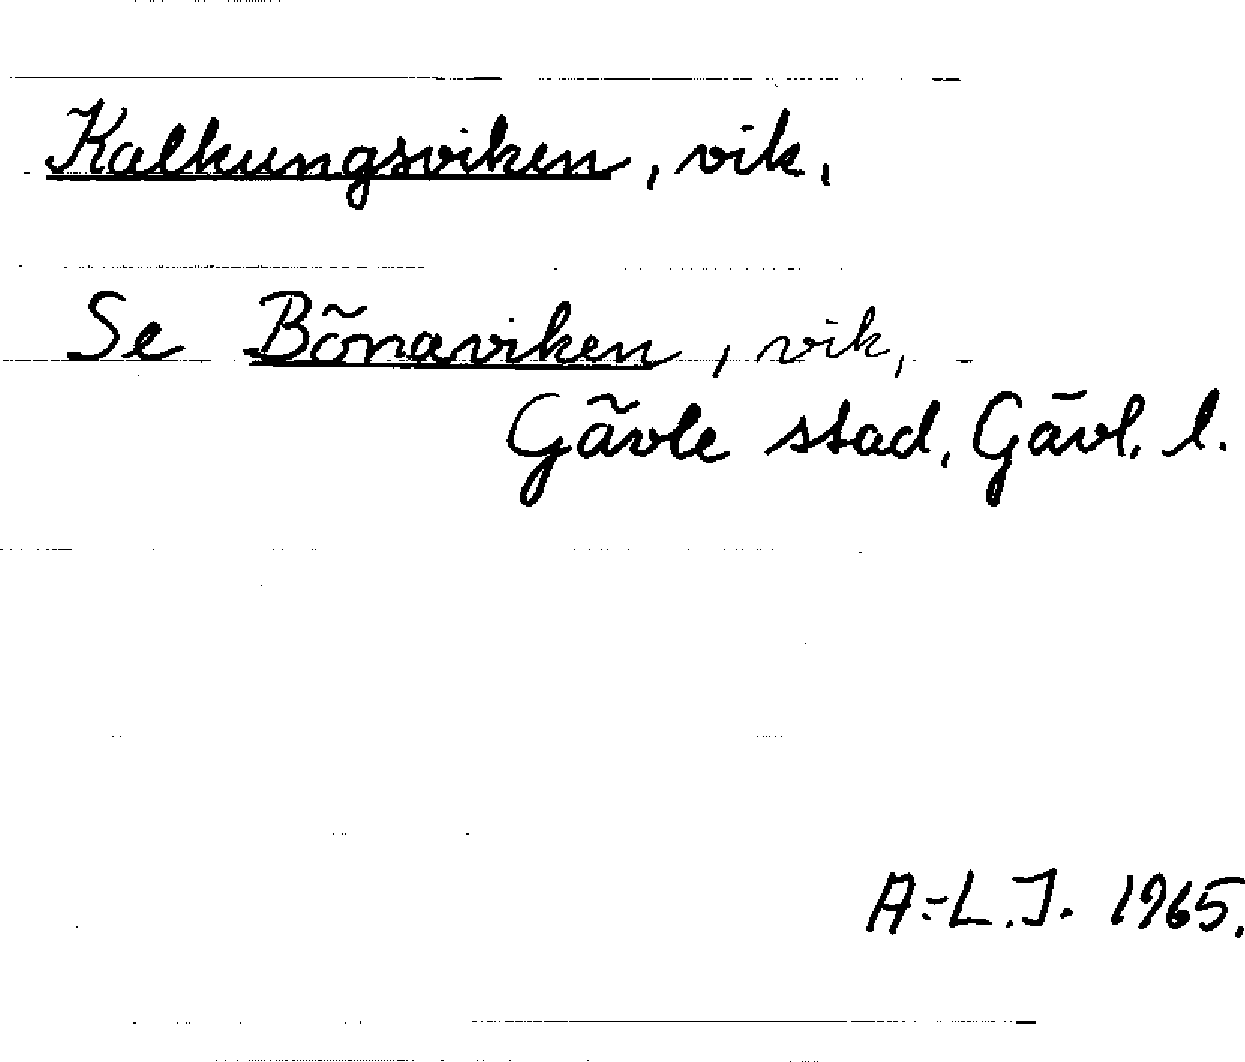 Kalkungsviken, vik,
Se Bönaviken, vik,
Gävle stad, Gävl. l.
A.-L.J. 1965.